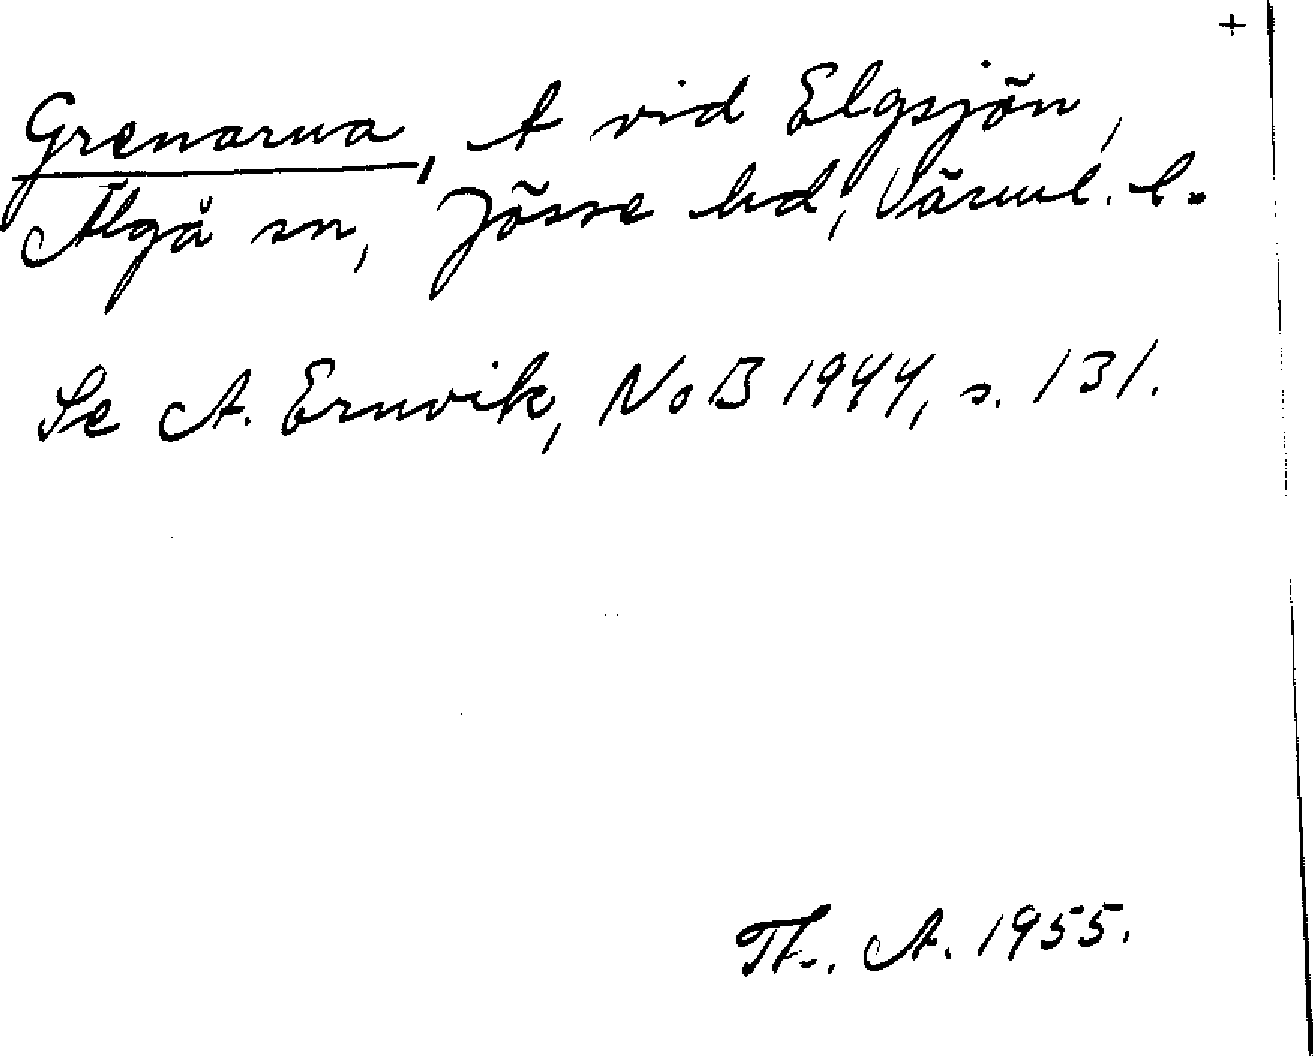 +
Grenarna, t vid Elgsjön,
Älgå sn, Jösse hd, Värml. l.
Se A. Ernvik, NoB 1944, s. 131.
Th. A. 1955.